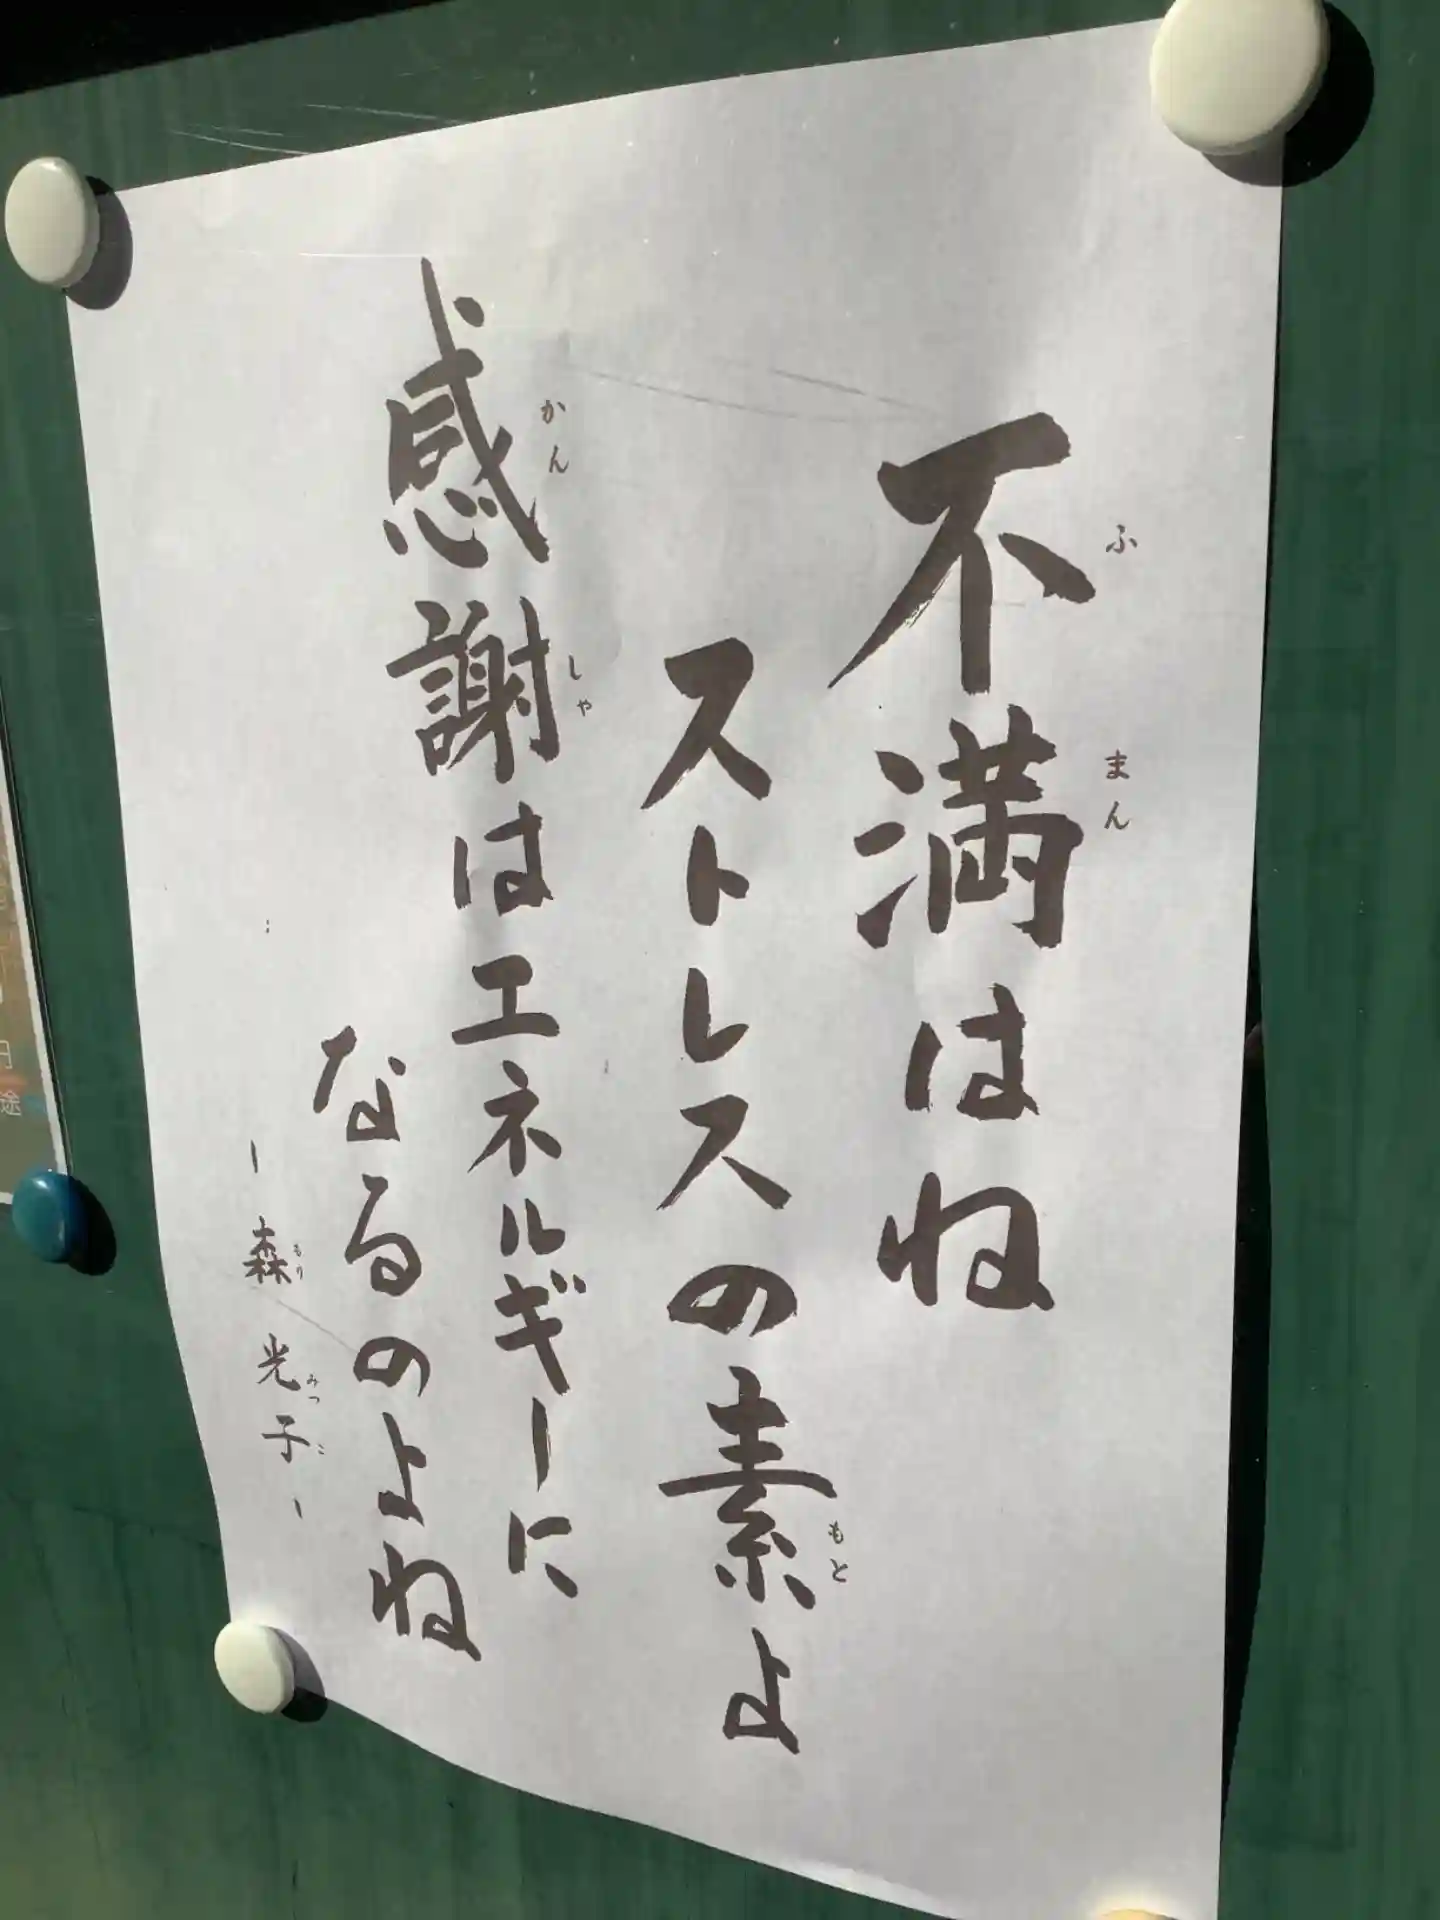 不満はね
ふまん
ストレスの素よ
もと
感謝はエネルギーに
かんしゃ
なるのよね
ー森光子ー
もりみつこ
円
途